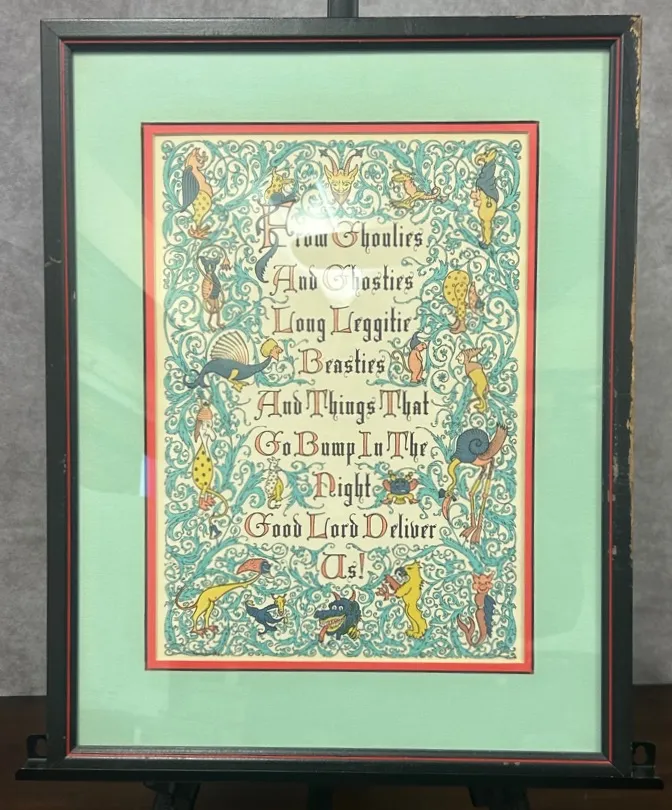 From Ghoulies
And Ghosties
Long Leggitie
Beasties
And Things That
Go Bump In The
Night
Good Lord Deliver
Us!